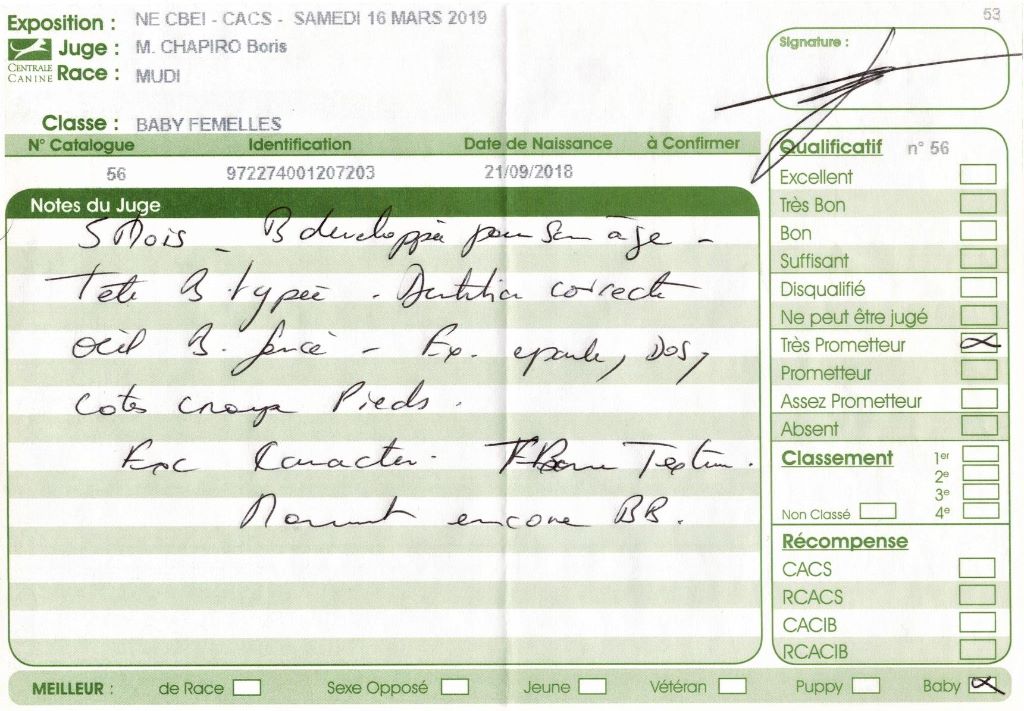 53
Exposition : NE CBEI - CACS - SAMEDI 16 MARS 2019
Juge : M. CHAPIRO Boris
CENTRALE CANINE
Race : MUDI
Signature :
Classe : BABY FEMELLES
N° Catalogue Identification Date de Naissance à Confirmer
56 972274001207203 21/09/2018
Notes du Juge
5 Mois - B developpée pour son âge -
Tete B. typée - Dentition correcte
oeil B. foncé - Ex. epaule, Dos,
cotes croupe Pieds.
Exc Caracter. TBonne Textur.
Mouvmt encore BB.
Qualificatif n° 56
Excellent
Très Bon
Bon
Suffisant
Disqualifié
Ne peut être jugé
Très Prometteur
Prometteur
Assez Prometteur
Absent
Classement 1er
2e
3e
Non Classé 4e
Récompense
CACS
RCACS
CACIB
RCACIB
MEILLEUR : de Race Sexe Opposé Jeune Vétéran Puppy Baby